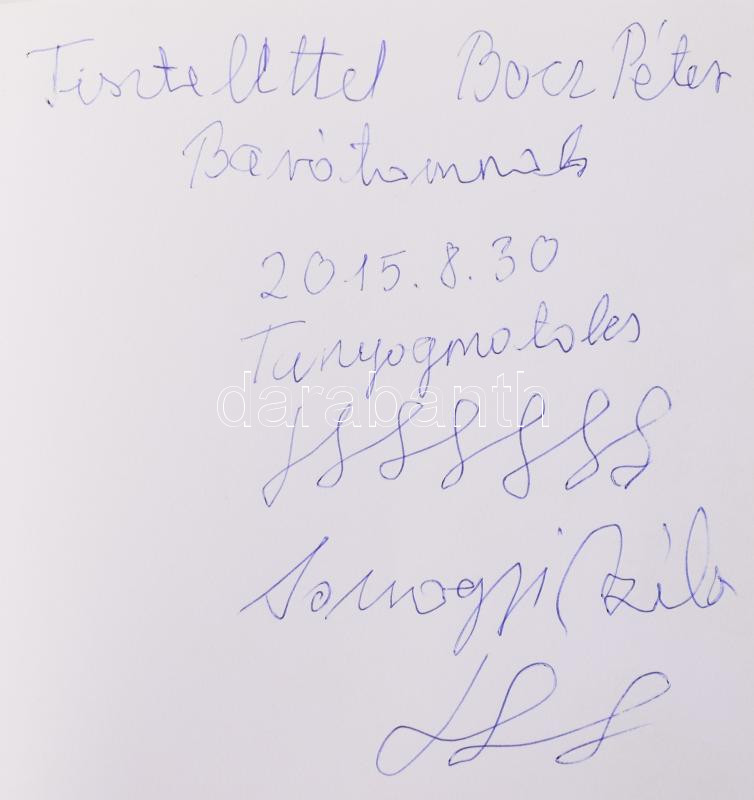 Tisztelettel Bocz Péter
Barátomnak
2015.8.30
Tunyogmatolcs
darabanth
Somogyi Béla